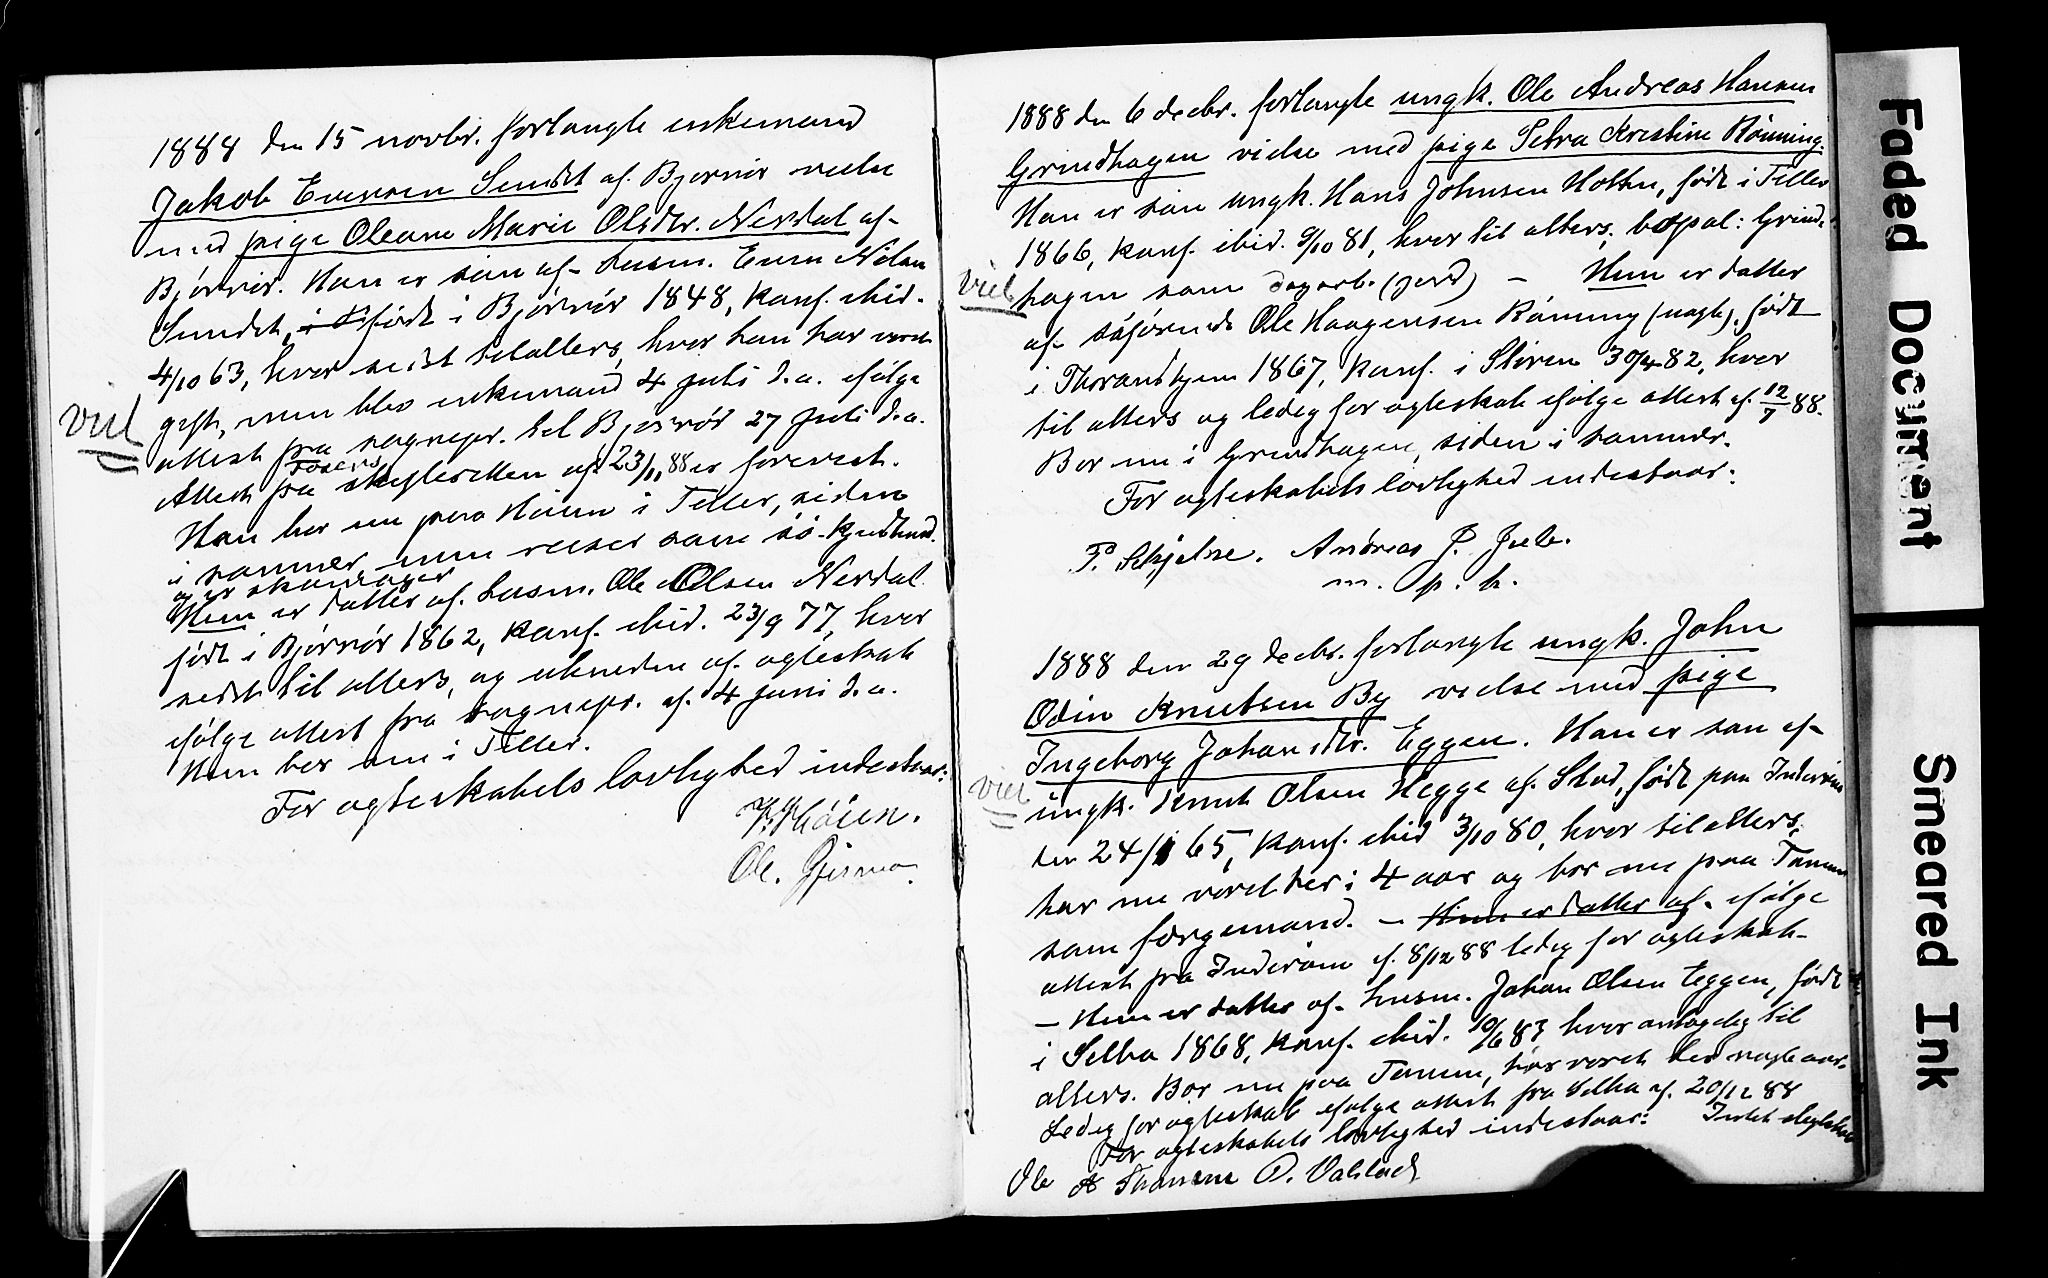 1888 den 15 novbr. forlangte enkemand
Jakob Evensen Sundet af Bjørnør vielse
med pige Oleane Marie Olsdtr. Nerdal af
Bjørnør. Han er søn af husm. Even Nilsen
Sundet, født i Bjørnør 1848, konf. ibid.
4/10 63, hvor sidst tilalters, hvor han har været
gift, men blev enkemand 4 juli d.a. ifølge
viel
attest fra sognepr. til Bjørnør 27 juli d.a.
Attest fra Fosens skifteretten af 23/11 88 er forevist.
Han bor nu paa Høien i Teller, siden
i sommer, men reiser som
og er skomager
Hun er datter af husm. Ole Olsen Nerdal
født i Bjørnør 1862, konf. ibid. 23/9 77, hvor
sidst til alters, og ubunden af ægteskab
ifølge attest fra sognepr. af 4 juni d.a.
Hun bor nu i Teller.
For ægteskabets lovlighed indestaar:
Høien.
Ole Gjersmo.
1888 den 6 decbr. forlangte ungk. Ole Andreas Hansen
Grindhagen vielse med pige Petra Kristine Rønning.
Han er søn ungk. Hans Johnsen Holten, født i Teller
1866, konf. ibid. 9/10 81, hvor til alters, bopæl: Grind-
viel
hagen som dagarb. (jord) – Hun er datter
af Ole Haagensen Rønning (uægte), født
i Throndhjem 1867, konf. i Støren 30/4 82, hvor
til alters og ledig for ægteskab ifølge attest af 12/7 88.
Bor nu i Grindhagen, siden i sommer.
For ægteskabets lovlighed indestaar:
P. Skjelne. Andreas P.
m. p. h.
1888 den 29 decbr. forlangte ungk. John
Odin Knutsen By vielse med pige
Ingeborg Johansdtr. Eggen. Han er søn af
viel
ungk. Knut Olsen Hegge af Stod, født paa Inderøen
den 24/1 65, konf. ibid 3/10 80, hvor til alters,
har nu været her i 4 aar og bor nu paa Tanem
som færgemand. – Hun er datter af. ifølge
attest fra Inderøen af 8/12 88 ledig for ægteskab
– Hun er datter af husm. Johan Olsen Eggen, født
i Selbu 1868, konf. ibid. 10/6 83 hvor antagelig til
alters. Bor nu paa Tanem, har været her nogle aar.
Ledig for ægteskab ifølge attest fra Selbu af 20/12 88
For ægteskabets lovlighed indestaar: Intet slegtskab
Ole A Thanem P. Valstad
Faded Document
Smeared Ink